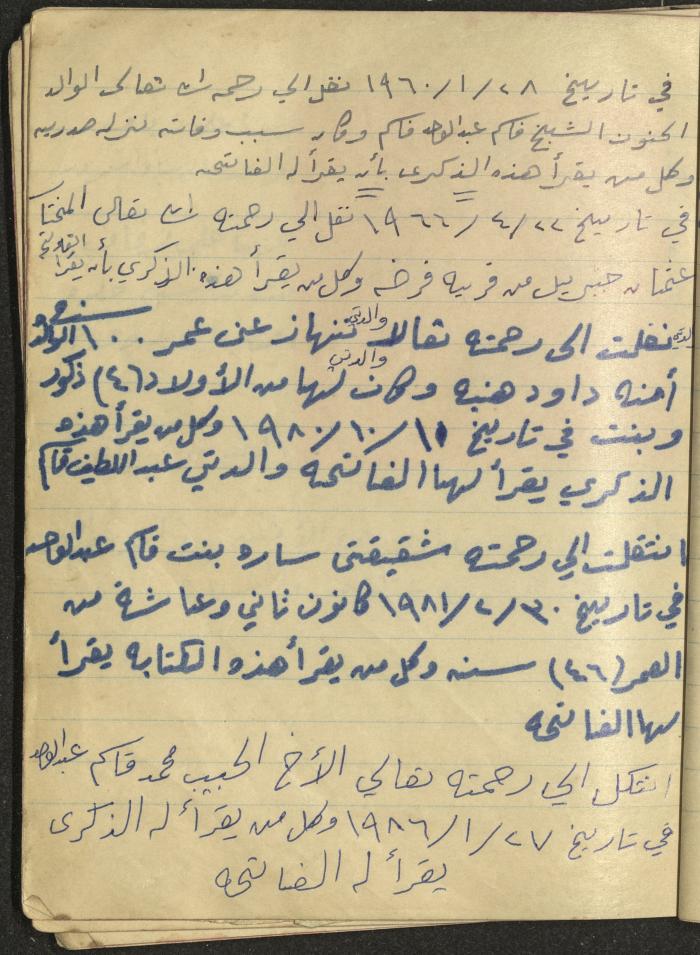 في تاريخ ٢٨/١/١٩٦٠ نقل الي رحمه الله تعالى الوالد
الحنون الشيخ قاسم عبدالواحد قاسم وكان سبب وفاته نزله صدريه
وكل من يقرأ هذه الذكرى بأن يقرأ له الفاتحه
في تاريخ ٢٢/٤/١٩٦٦ نقل الي رحمته الله تعالى المختار
عثمان جبريل من قريه فرخه وكل من يقرأ هذه الذكري بأن يقرأ الفاتحة
نقلت الى رحمته تعالا والدتي عن عمر ١٠٠ سنه
أمنه داود هنيه والدتي وكان لها من الأولاد (٤) ذكور
وبنت في تاريخ ١١/١٠/١٩٨٠ وكل من يقرأ هذه
الذكري يقرأ لها الفاتحه والدتي عبد اللطيف قاسم
انتقلت الي رحمته شقيقتى ساره بنت قاسم عبدالواحد
في تاريخ ٣٠/٢/١٩٨١ كانون ثاني وعاشة من
العمر (٤٦) سنه وكل من يقرأ هذه الكتابه يقرأ
لها الفاتحه
انتقل الي رحمته تعالي الأخ الحبيب محمد قاسم عبدالواحد
في تاريخ ٢٧/١/١٩٨٦ وكل من يقرأ له الذكرى
يقرأ له الفاتحه